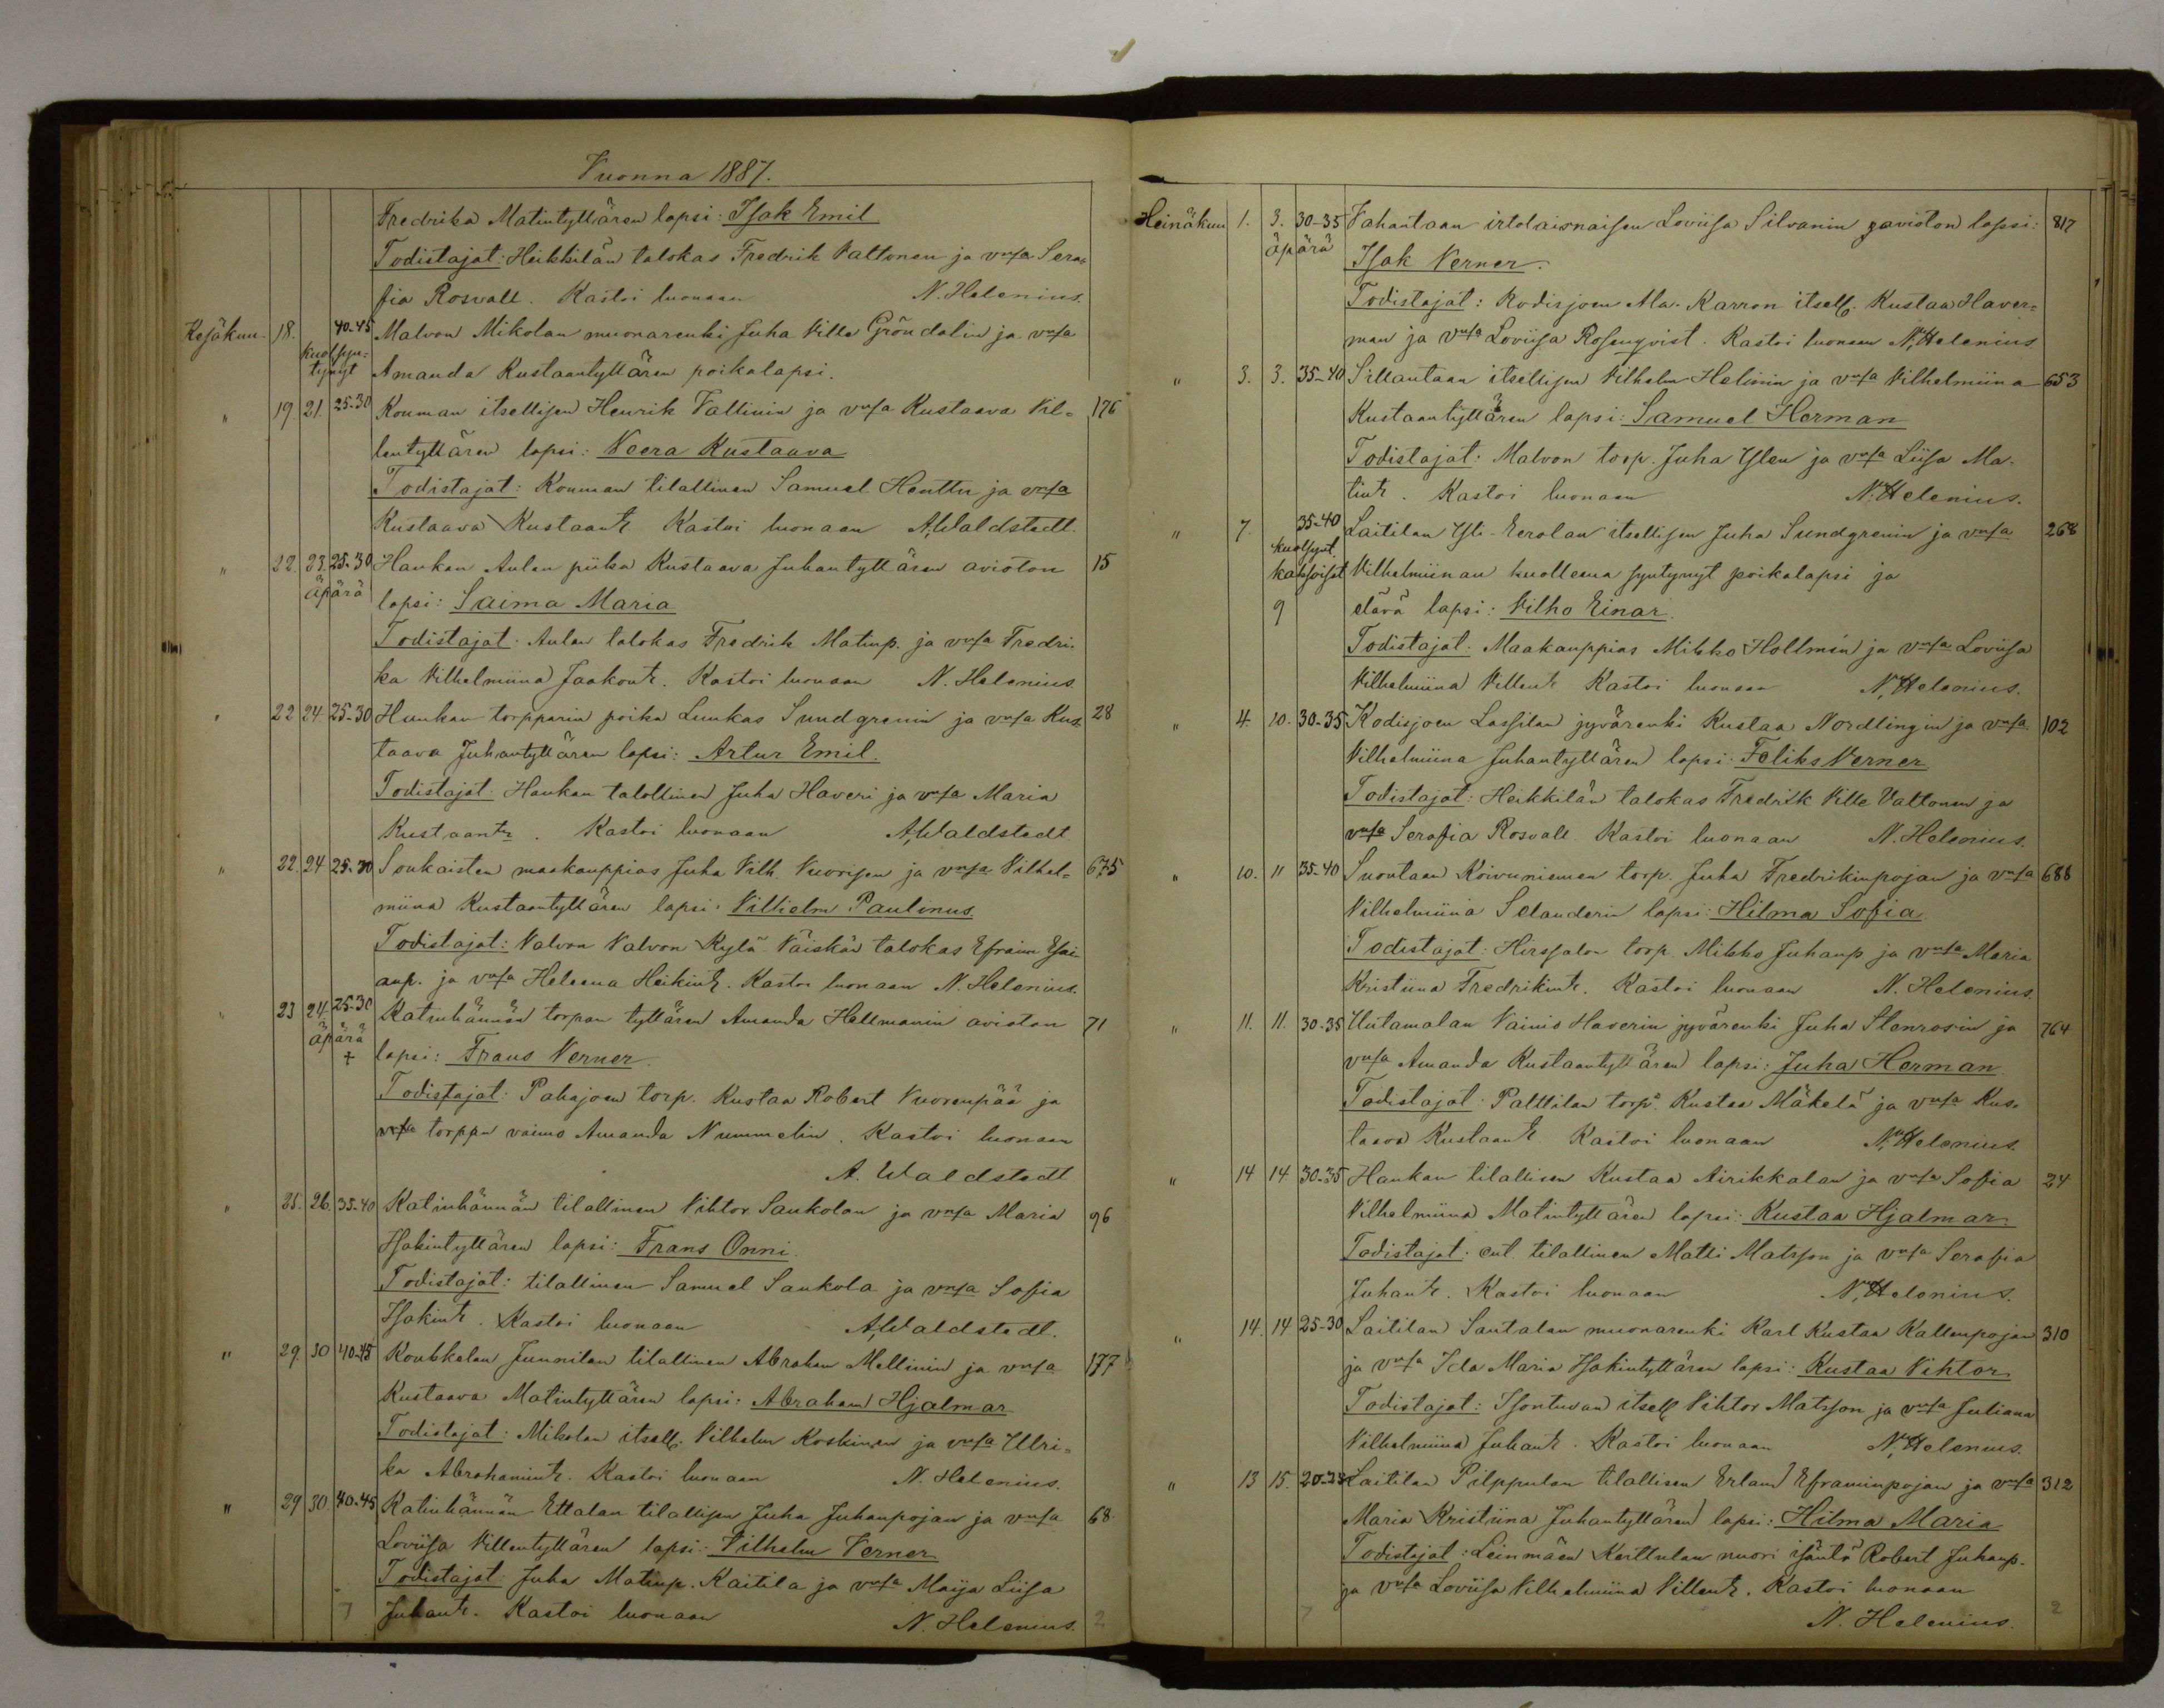 Vuonna 1887.
Fredrika Matintyttären lapsi: Isak Emil
Todistajat: Heikkilän talokas Fredrik Valtonen ja vmsa Sera-
fia Rosvall. Kastoi luonaan N. Helenius.
Kesäkuu. 18. 40-45 Malvon Mikolan muonarenki Juha Ville Gröndalin ja vmsa
kuol. syn-
tynyt Amanda Kustaantyttären poikalapsi.
" 19 21. 25-30 Kouman itsellisen Henrik Vallinin ja vmsa Kustaava Vil- 176
lentyttären lapsi: Veera Kustaava
Todistajat: Kouman tilallinen Samuel Henttu ja vmsa
Kustaava Kustaantr Kastoi luonaan A. Waldstedt.
" 22. 23. 25-30 Haukan Aulan piika Kustaava Juhantyttären avioton 15
äpärä lapsi: Saima Maria
Todistajat: Aulan talokas Fredrik Matinp. ja vmsa Fredri-
ka Vilhelmiina Jaakontr. Kastoi luonaan N. Helenius.
" 22 24. 25-30 Haukan torpparin poika Luukas Sundgrenin ja vmsa Kus- 28
taava Juhantyttären lapsi: Artur Emil.
Todistajat: Haukan talollinen Juha Haveri ja vmsa Maria
Kustaantr. Kastoi luonaan A. Waldstedt
" 22. 24 25-30 Soukaisten maakauppias Juha Vilh. Vuorisen ja vmsa Vilhel- 675
miina Kustaantyttären lapsi: Vilhelm Paulinus
Todistajat: Valvon Valvon Kylä-Väiskän talokas Efraim Esai-
anp. ja vmsa Heleena Heikintr. Kastoi luonaan N. Helenius.
" 23 24. 25-30 Katinhännän torpan tyttären Amanda Hellmanin avioton 71
äpärä
+ lapsi: Frans Verner.
Todistajat: Pahajoen torp. Kustaa Robert Vuorenpää ja
vmsa torpan vaimo Amanda Nummelin. Kastoi luonaan
A. Waldstedt
" 25. 26. 35-40 Katinhännän tilallinen Vihtor Saukolan ja vmsa Maria 96
Isakintyttären lapsi: Frans Onni.
Todistajat: tilallinen Samuel Saukola ja vmsa Sofia
Isakintr. Kastoi luonaan A. Waldstedt.
" 29 30 40-45 Koukkelan Junnilan tilallinen Abraham Mellinin ja vmsa 177
Kustaava Matintyttären lapsi: Abraham Hjalmar
Todistajat: Mikolan itsell. Vilhelm Koskinen ja vmsa Ulri-
ka Abrahamintr. Kastoi luonaan N. Helenius.
" 29 30. 40-45 Katinhännän Ettalan tilallisen Juha Juhanpojan ja vmsa 68.
Loviisa Villentyttären lapsi: Vilhelm Verner
Todistajat: Juha Matinp. Kaitila ja vmsa Maija Liisa
Juhantr. Kastoi luonaan N. Helenius. 2
Heinäkuu 1. 3. 30-35 Vahantaan irtolaisnaisen Loviisa Silvanin avioton lapsi: 817
äpärä Isak Verner.
Todistajat: Kodisjoen Ala-Karron itsell. Kustaa Haver-
man ja vmsa Loviisa Rosenqvist. Kastoi luonaan N. Helenius
" 3. 3. 35-40 Sillantaan itsellisen Vilhelm Helinin ja vmsa Vilhelmiina 653
Kustaantyttären lapsi: Samuel Herman
Todistajat: Malvon torp. Juha Ylen ja vmsa Liisa Ma-
tintr. Kastoi luonaan N. Helenius.
" 7. 35-40 Laitilan Yli-Eerolan itsellisen Juha Sundgrenin ja vmsa 268
kuol. synt.
kaksoiset Vilhelmiinan kuolleena syntynyt poikalapsi ja
9 elävä lapsi: Vilho Einar.
Todistajat: Maakauppias Mikko Hollmén ja vmsa Loviisa
Vilhelmiina Villentr Kastoi luonaan N. Helenius.
" 4. 10. 30-35 Kodisjoen Lassilan jyvärenki Kustaa Nordlingin ja vmsa 102
Vilhelmiina Juhantyttären lapsi: Feliks Verner
Todistajat: Heikkilän talokas Fredrik Ville Valtonen ja
vmsa Serafia Rosvall Kastoi luonaan N. Helenius.
" 10. 11 35-40 Suontaan Koivuniemen torp. Juha Fredrikinpojan ja vmsa 688
Vilhelmiina Selanderin lapsi: Hilma Sofia.
Todistajat: Hirssalon torp. Mikko Juhanp ja vmsa Maria
Kristiina Fredrikintr. Kastoi luonaan N. Helenius.
" 11. 11. 30-35 Untamalan Vainio Haverin jyvärenki Juha Stenrosin ja 764
vmsa Amanda Kustaantyttären lapsi: Juha Herman
Todistajat: Palttilan torp. Kustaa Mäkelä ja vmsa Kus-
taava Kustaantr Kastoi luonaan N. Helenius.
" 14 14 30-35 Haukan tilallisen Kustaa Airikkalan ja vmsa Sofia 24
Vilhelmiina Matintyttären lapsi: Kustaa Hjalmar
Todistajat: ent. tilallinen Matti Matsson ja vmsa Serafia
Juhantr. Kastoi luonaan N. Helenius.
" 14. 14 25-30 Laitilan Santalan muonarenki Karl Kustaa Kallenpojan 310
ja vmsa Ida Maria Isakintyttären lapsi: Kustaa Vihtor
Todistajat: Isontuvan itsell Vihtor Matsson ja vmsa Juliana
Vilhelmiina Juhantr. Kastoi luonaan N. Helenius.
" 13 15. Laitilan Pilppulan tilallisen Erland Efraiminpojan ja vmsa 312
Maria Kristiina Juhantyttären lapsi: Hilma Maria
Todistajat: Leinmäen Kerttulan nuori isäntä Robert Juhanp.
ja vmsa Loviisa Vilhelmiina Villentr. Kastoi luonaan
N. Helenius. 2